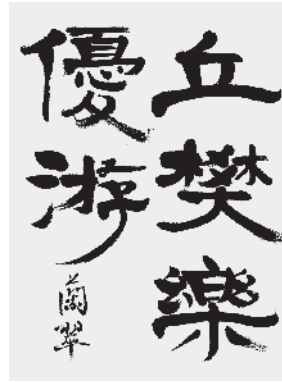 丘樊樂
優游
蘭翠